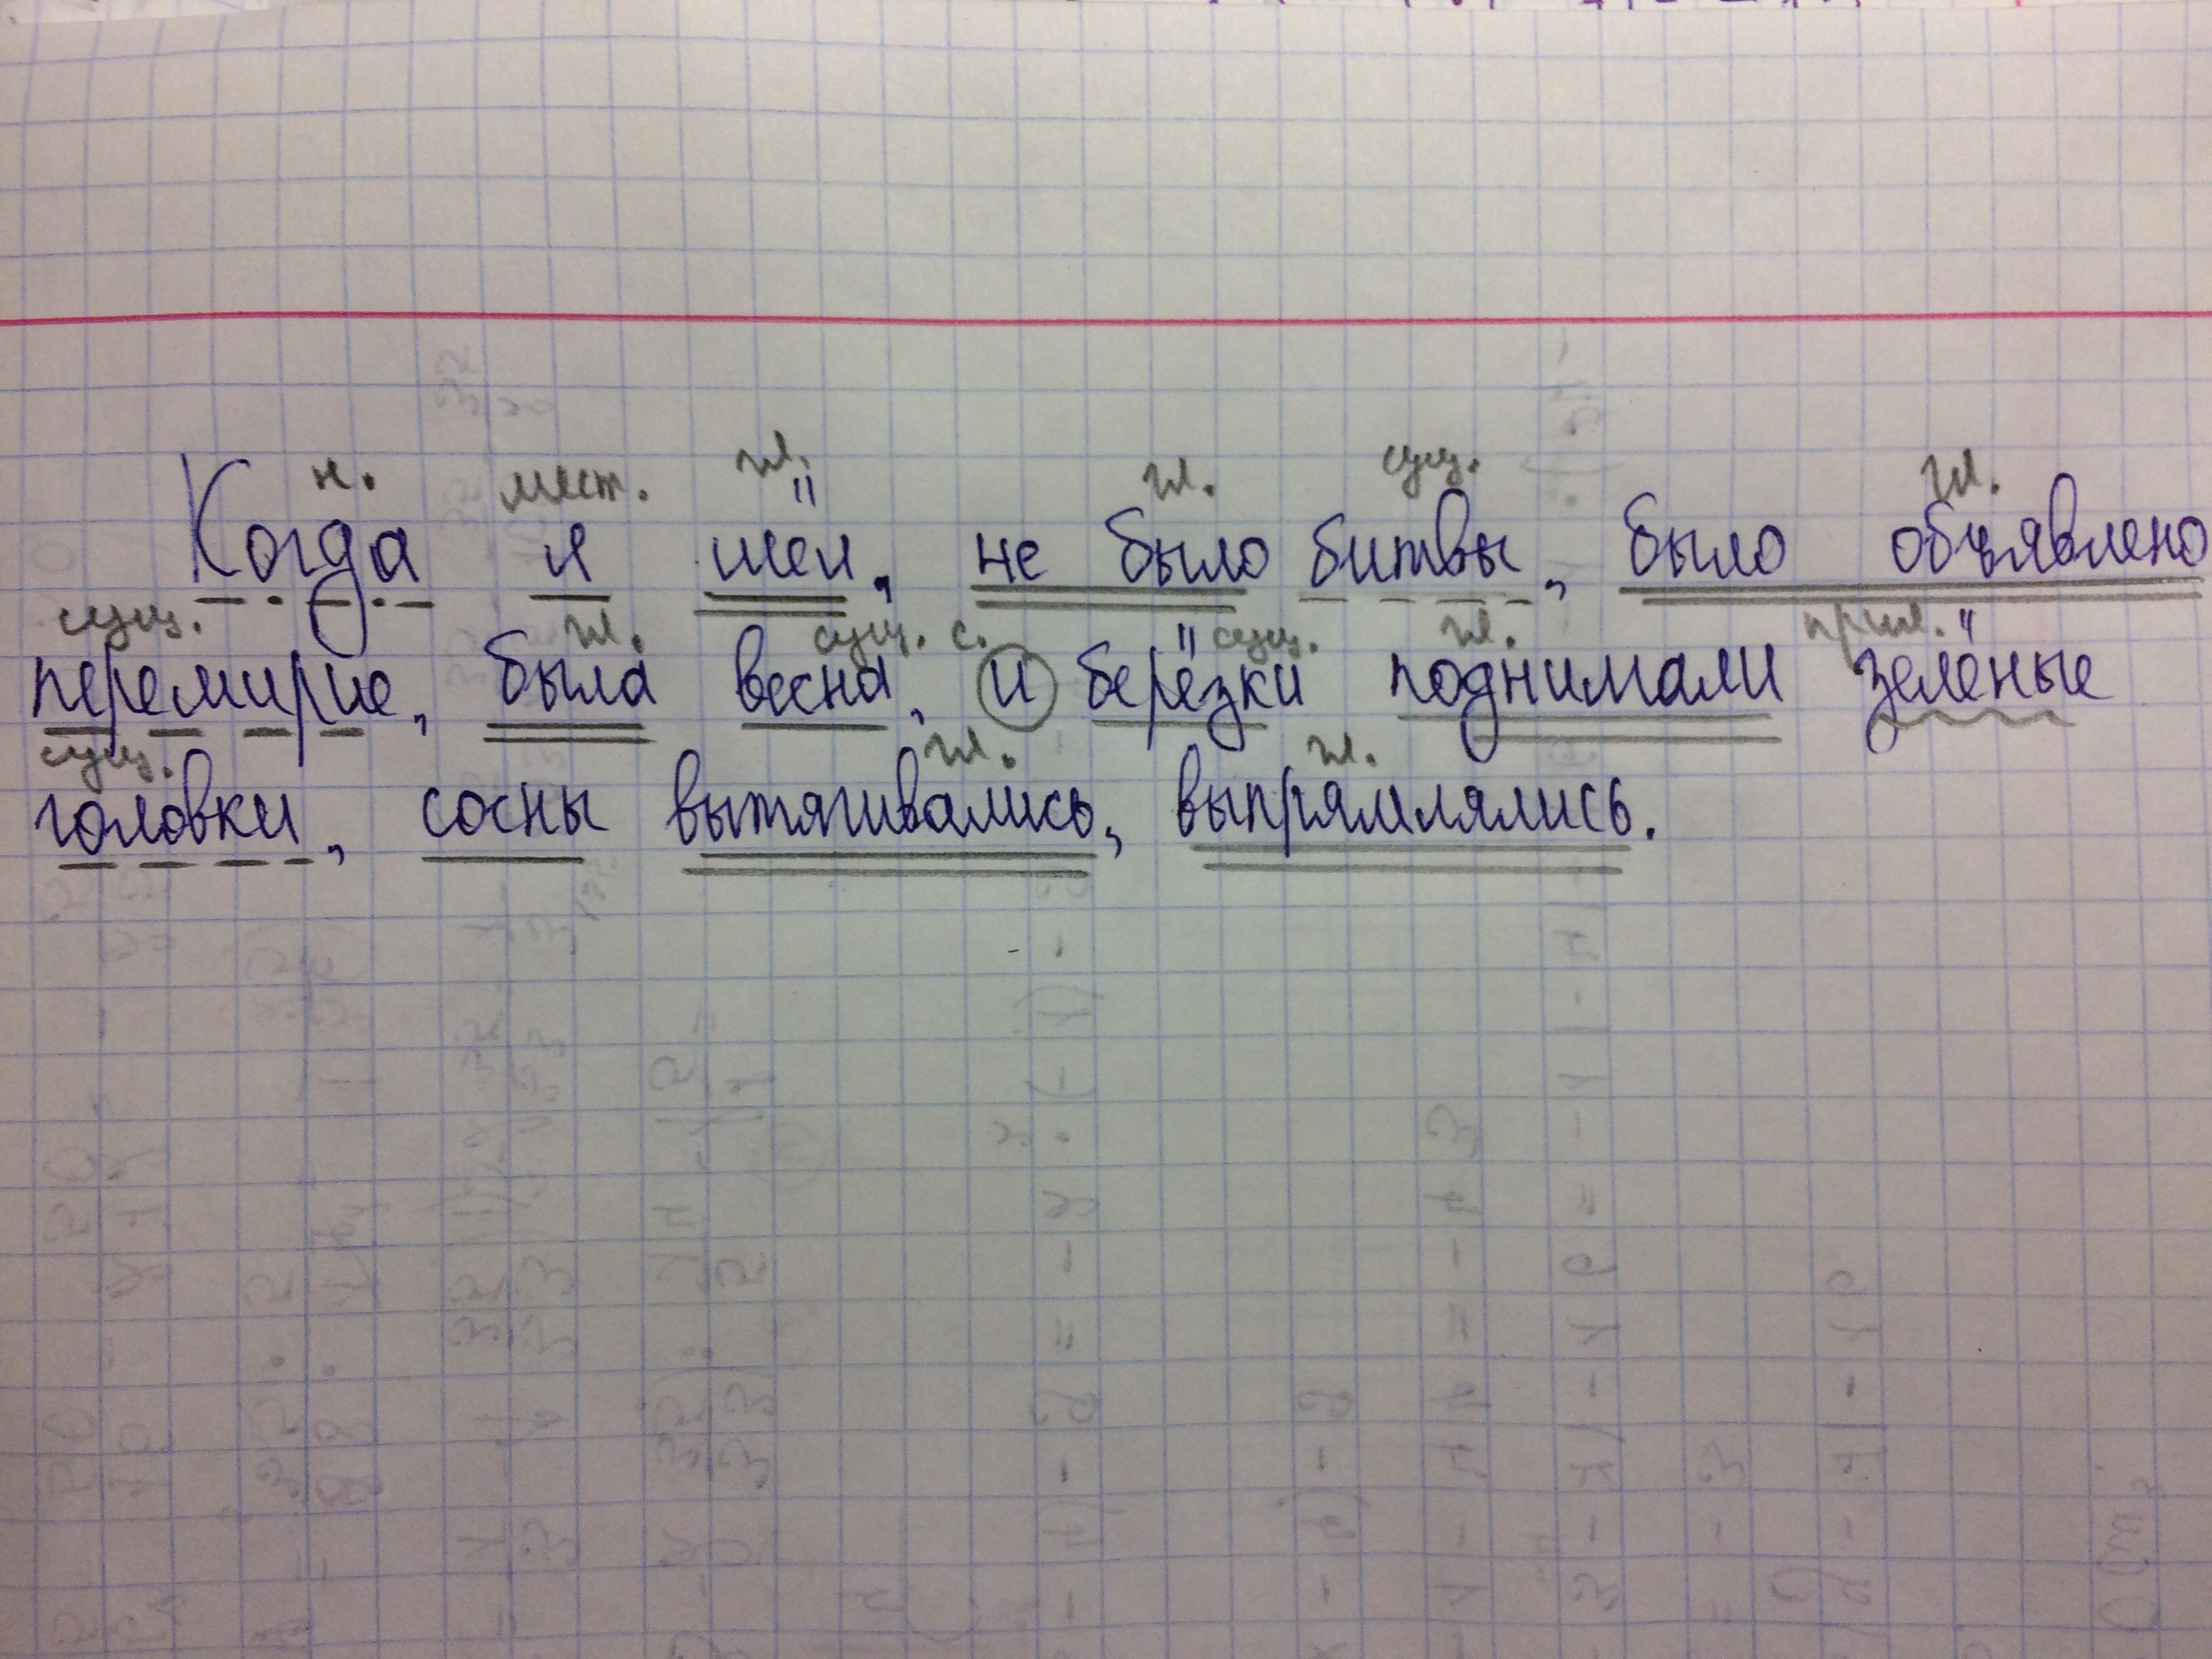 н. мест. гл. гл. сущ. гл.
Когда я шёл, не было битвы, было объявлено
сущ. гл. сущ. с. сущ. гл. прил.
перемирие, была весна, и берёзки поднимали зелёные
сущ. гл. гл.
головки, сосны вытягивались, выпрямлялись.